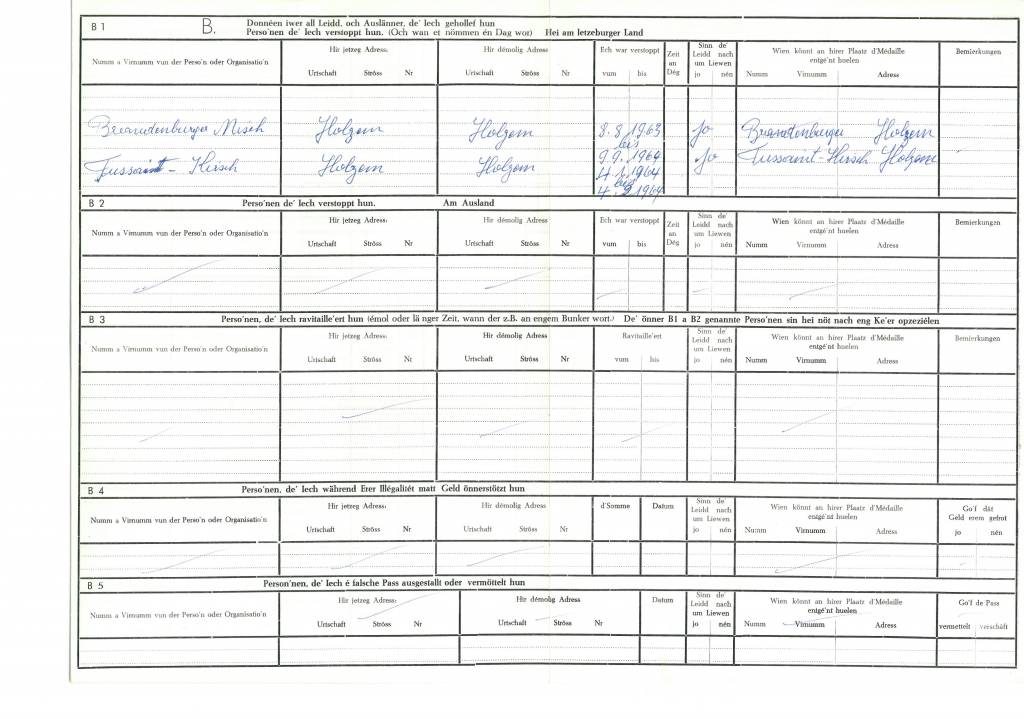 B 1 B. Donnéen iwer all Leidd, och Auslänner, de' Iech gehollef hun
Perso'nen de' Iech verstoppt hun. (Och wan et nömmen én Dag wor) Hei am letzeburger Land
Numm a Virnumm vun der Perso'n oder Organisatio'n
Hir jetzeg Adress:
Urtschaft Ströss Nr
Hir démolig Adress
Urtschaft Ströss Nr
Ech war verstoppt
vum bis
Zeit
an
Dég
Sinn de'
Leidd nach
um Liewen
jo nén
Wien könnt an hirer Plaatz d'Médaille
entgé'nt huelen
Numm Virnumm Adress
Bemierkungen
Brandenburger Misch Holzem Holzem 8.8.1963 jo Brandenburger Holzem
bis
9.9.1964
Tussaint - Kirsch Holzem Holzem 4.1.1964 jo Tussaint-Kirsch Holzem
bis
4.9.1964
B 2 Perso'nen de' Iech verstoppt hun. Am Ausland
Numm a Virnumm vun der Perso'n oder Organisatio'n
Hir jetzeg Adress:
Urtschaft Ströss Nr
Hir démolig Adress
Urtschaft Ströss Nr
Ech war verstoppt
vum bis
Zeit
an
Dég
Sinn de'
Leidd nach
um Liewen
jo nén
Wien könnt an hirer Plaatz d'Médaille
entgé'nt huelen
Numm Virnumm Adress
Bemierkungen
B 3 Perso'nen, de' Iech ravitaille'ert hun (émol oder länger Zeit, wann der z.B. an engem Bunker wort.) De' önner B1 a B2 genannte Perso'nen sin hei nöt nach eng Ke'er opzeziélen
Numm a Virnumm vun der Perso'n oder Organisatio'n
Hir jetzeg Adress:
Urtschaft Ströss Nr
Hir démolig Adress
Urtschaft Ströss Nr
Ravitaille'ert
vum bis
Sinn de'
Leidd nach
um Liewen
jo nén
Wien könnt an hirer Plaatz d'Médaille
entgé'nt huelen
Numm Virnumm Adress
Bemierkungen
B 4 Perso'nen, de' Iech während Erer Illégalitét matt Geld önnerstötzt hun
Numm a Virnumm vun der Perso'n oder Organisatio'n
Hir jetzeg Adress:
Urtschaft Ströss Nr
Hir démolig Adress
Urtschaft Ströss Nr
d'Somme
Datum
Sinn de'
Leidd nach
um Liewen
jo nén
Wien könnt an hirer Plaatz d'Médaille
entgé'nt huelen
Numm Virnumm Adress
Go'f dât
Geld erem gefrot
jo nén
B 5 Person'nen, de' Iech é falsche Pass ausgestallt oder vermöttelt hun
Numm a Virnumm vun der Perso'n oder Organisatio'n
Hir jetzeg Adress:
Urtschaft Ströss Nr
Hir démolig Adress
Urtschaft Ströss Nr
Datum
Sinn de'
Leidd nach
um Liewen
jo nén
Wien könnt an hirer Plaatz d'Médaille
entgé'nt huelen
Numm Virnumm Adress
Go'f de Pass
vermettelt verschâft